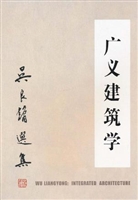 广义建筑学
吴良镛选集
WU LIANGYONG: INTEGRATED ARCHITECTURE